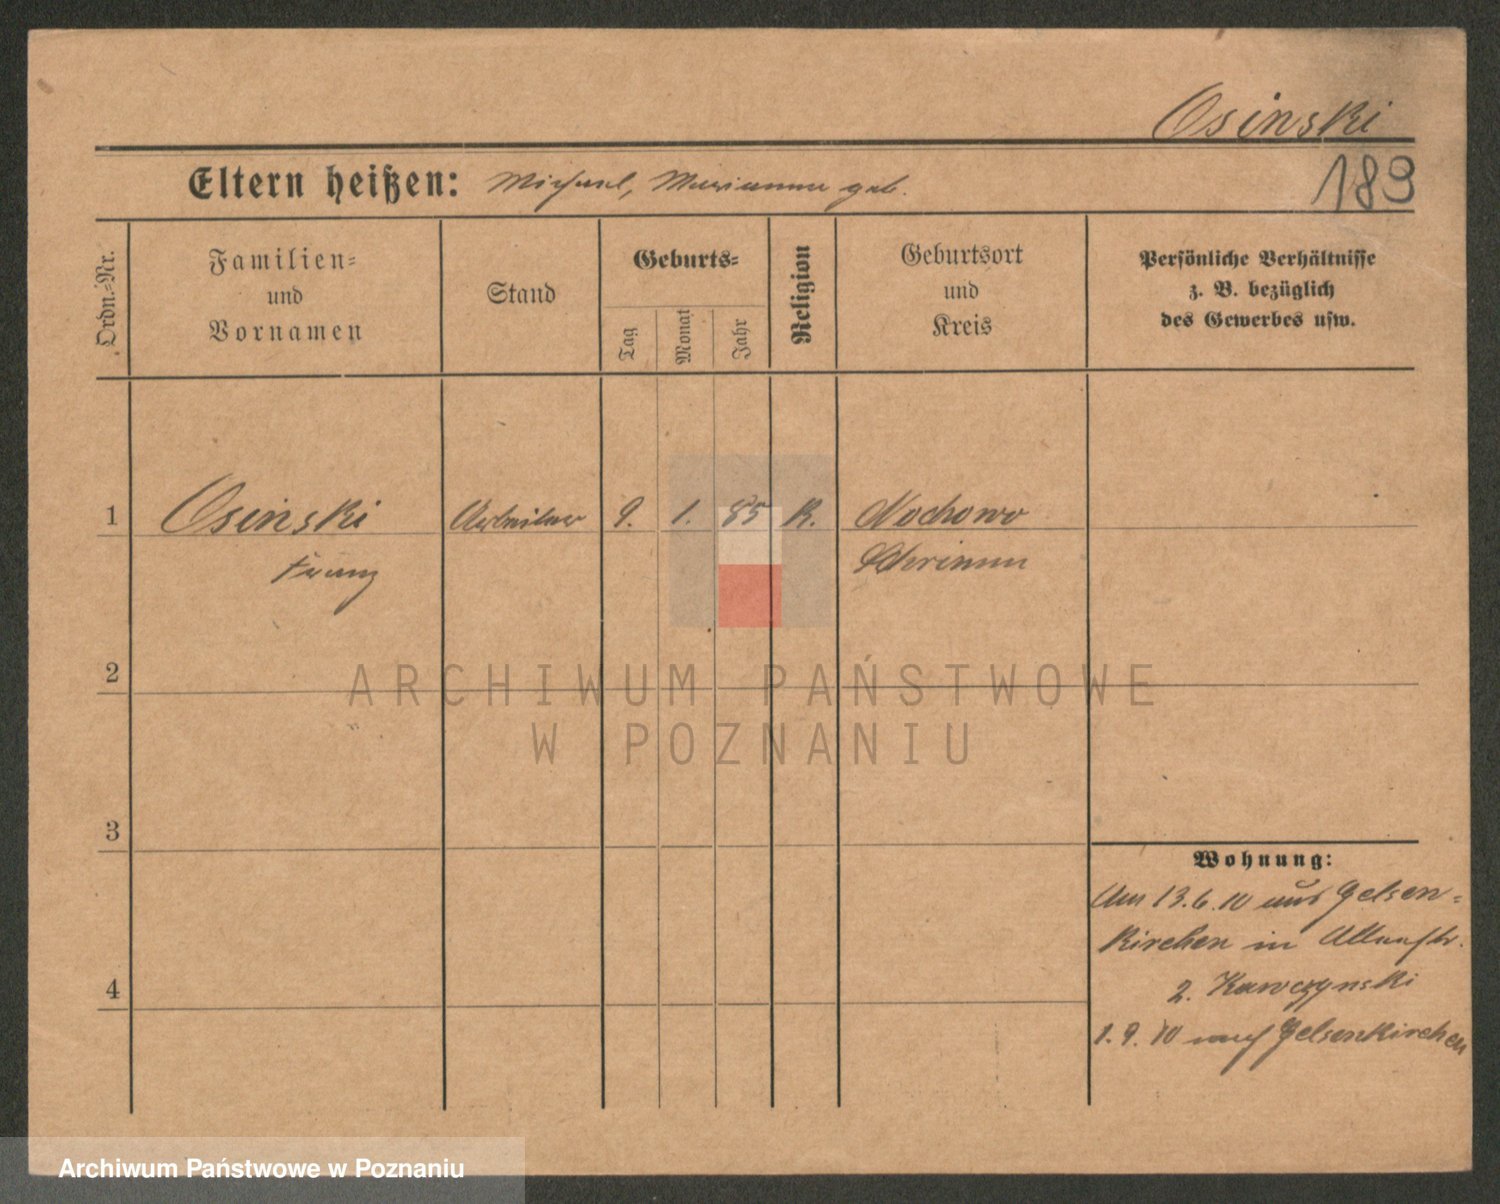 Osinski
189
Eltern heißen: Michael, Marianna geb.
Ordn.-Nr.
Familien-
und
Vornamen
Stand
Geburts-
Tag
Monat
Jahr
Religion
Geburtsort
und
Kreis
Persönliche Verhältnisse
z. B. bezüglich
des Gewerbes usw.
1 Osinski Arbeiter 9. 1. 85 K. Nochowo
Franz Schrimm
2
ARCHIWUM PAŃSTWOWE
W POZNANIU
3
Wohnung:
Am 13.6.10 aus Gelsen-
kirchen in
4
2. Kawczynski
1.9.10 nach Gelsenkirchen
Archiwum Państwowe w Poznaniu